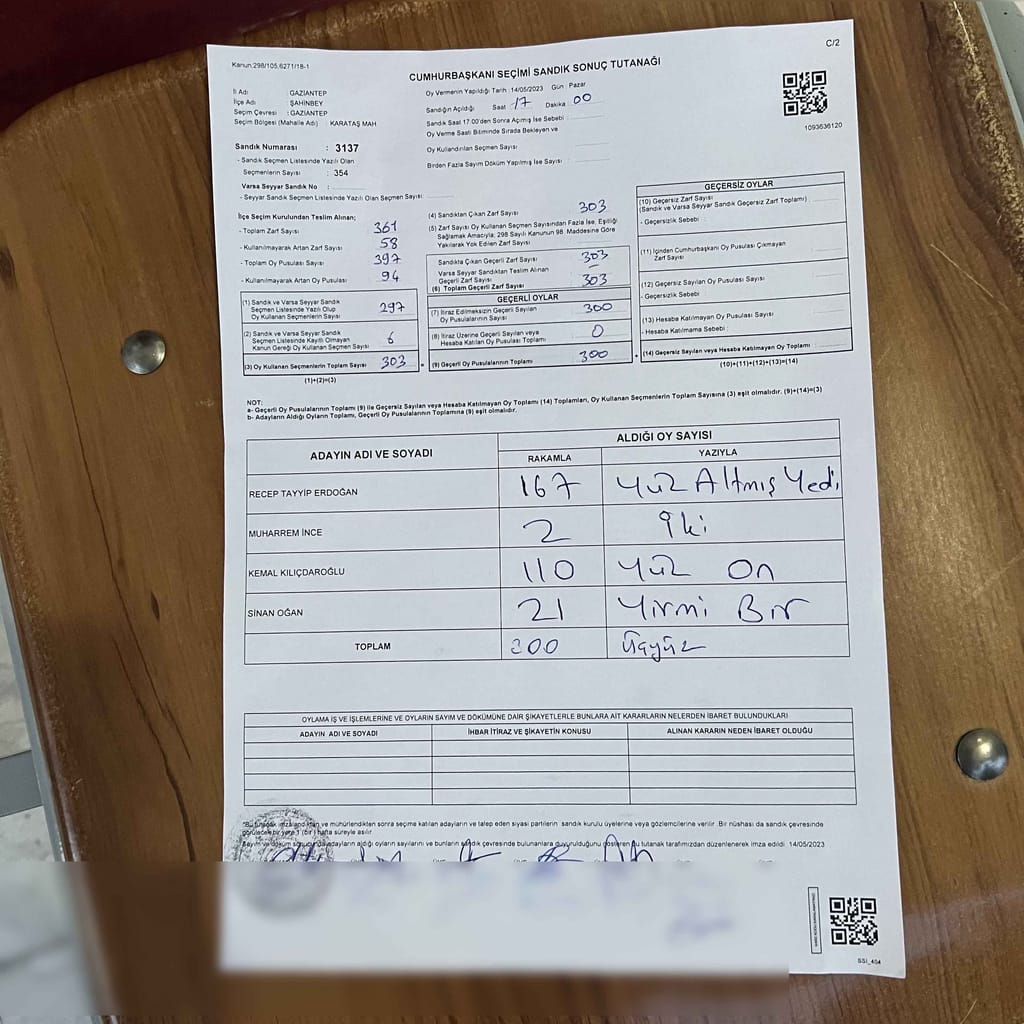 Kanun:298/105,6271/18-1
C/2
CUMHURBAŞKANI SEÇİMİ SANDIK SONUÇ TUTANAĞI
İl Adı : GAZİANTEP
İlçe Adı : ŞAHİNBEY
Seçim Çevresi : GAZİANTEP
Seçim Bölgesi (Mahalle Adı) : KARATAŞ MAH
Oy Vermenin Yapıldığı Tarih :14/05/2023 Gün : Pazar
Sandığın Açıldığı Saat :17 Dakika :00
Sandık Saat 17.00'den Sonra Açılmış İse Sebebi :
Oy Verme Saati Bitiminde Sırada Bekleyen ve
Oy Kullandırılan Seçmen Sayısı :
Birden Fazla Sayım Döküm Yapılmış İse Sayısı :
1093636120
Sandık Numarası : 3137
- Sandık Seçmen Listesinde Yazılı Olan
Seçmenlerin Sayısı : 354
Varsa Seyyar Sandık No :
- Seyyar Sandık Seçmen Listesinde Yazılı Olan Seçmen Sayısı:
İlçe Seçim Kurulundan Teslim Alınan;
- Toplam Zarf Sayısı : 361
- Kullanılmayarak Artan Zarf Sayısı : 58
- Toplam Oy Pusulası Sayısı : 397
- Kullanılmayarak Artan Oy Pusulası : 94
(1) Sandık ve Varsa Seyyar Sandık
Seçmen Listesinde Yazılı Olup
Oy Kullanan Seçmenlerin Sayısı : 297
(2) Sandık ve Varsa Seyyar Sandık
Seçmen Listesinde Kayıtlı Olmayan
Kanun Gereği Oy Kullanan Seçmen Sayısı : 6
(3) Oy Kullanan Seçmenlerin Toplam Sayısı : 303
(1)+(2)=(3)
(4) Sandıktan Çıkan Zarf Sayısı : 303
(5) Zarf Sayısı Oy Kullanan Seçmen Sayısından Fazla İse, Eşitliği
Sağlamak Amacıyla; 298 Sayılı Kanunun 98. Maddesine Göre
Yakılarak Yok Edilen Zarf Sayısı :
Sandıkta Çıkan Geçerli Zarf Sayısı : 303
Varsa Seyyar Sandıktan Teslim Alınan
Geçerli Zarf Sayısı : –
(6) Toplam Geçerli Zarf Sayısı : 303
GEÇERLİ OYLAR
(7) İtiraz Edilmeksizin Geçerli Sayılan
Oy Pusulalarının Sayısı : 300
(8) İtiraz Üzerine Geçerli Sayılan veya
Hesaba Katılan Oy Pusulası Toplamı : 0
(9) Geçerli Oy Pusulalarının Toplamı : 300
GEÇERSİZ OYLAR
(10) Geçersiz Zarf Sayısı
(Sandık ve Varsa Seyyar Sandık Geçersiz Zarf Toplamı) :
- Geçersizlik Sebebi :
(11) İçinden Cumhurbaşkanı Oy Pusulası Çıkmayan
Zarf Sayısı :
(12) Geçersiz Sayılan Oy Pusulası Sayısı :
- Geçersizlik Sebebi :
(13) Hesaba Katılmayan Oy Pusulası Sayısı :
- Hesaba Katılmama Sebebi :
(14) Geçersiz Sayılan veya Hesaba Katılmayan Oy Toplamı :
(10)+(11)+(12)+(13)=(14)
NOT:
a- Geçerli Oy Pusulalarının Toplamı (9) ile Geçersiz Sayılan veya Hesaba Katılmayan Oy Toplamı (14) Toplamları, Oy Kullanan Seçmenlerin Toplam Sayısına (3) eşit olmalıdır. (9)+(14)=(3)
b- Adayların Aldığı Oyların Toplamı, Geçerli Oy Pusulalarının Toplamına (9) eşit olmalıdır.
ADAYIN ADI VE SOYADI
ALDIĞI OY SAYISI
RAKAMLA YAZIYLA
RECEP TAYYİP ERDOĞAN 167 Yüz Altmış Yedi
MUHARREM İNCE 2 İki
KEMAL KILIÇDAROĞLU 110 Yüz On
SİNAN OĞAN 21 Yirmi Bir
TOPLAM 300 Üçyüz
OYLAMA İŞ VE İŞLEMLERİNE VE OYLARIN SAYIM VE DÖKÜMÜNE DAİR ŞİKAYETLERLE BUNLARA AİT KARARLARIN NELERDEN İBARET BULUNDUKLARI
ADAYIN ADI VE SOYADI İHBAR İTİRAZ VE ŞİKAYETİN KONUSU ALINAN KARARIN NEDEN İBARET OLDUĞU
*Bu tutanak imzalandıktan ve mühürlendikten sonra seçime katılan adayların ve talep eden siyasi partilerin sandık kurulu üyelerine veya gözlemcilerine verilir. Bir nüshası da sandık çevresinde
görülecek bir yere 1 (bir) hafta süreyle asılır.
Sayım ve döküm sonucunda adayların aldığı oyların sayılarını ve bunların sandık çevresinde bulunanlara duyurulduğunu gösteren bu tutanak tarafımızdan düzenlenerek imza edildi. 14/05/2023
SSİ_404